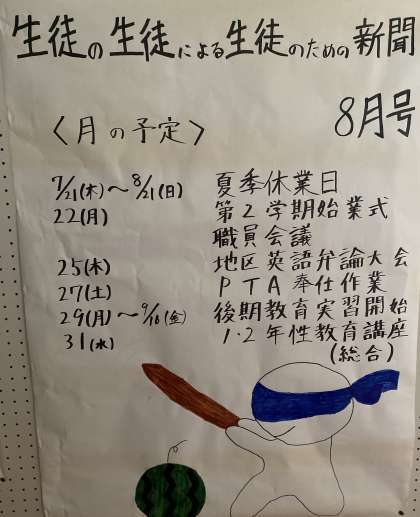 生徒の生徒による生徒のための新聞
8月号
〈月の予定〉
7/21(木)〜8/21(日) 夏季休業日
22(月) 第2学期始業式
職員会議
25(木) 地区英語弁論大会
27(土) PTA奉仕作業
29(月)〜9/16(金) 後期教育実習開始
31(水) 1・2年性教育講座
(総合)